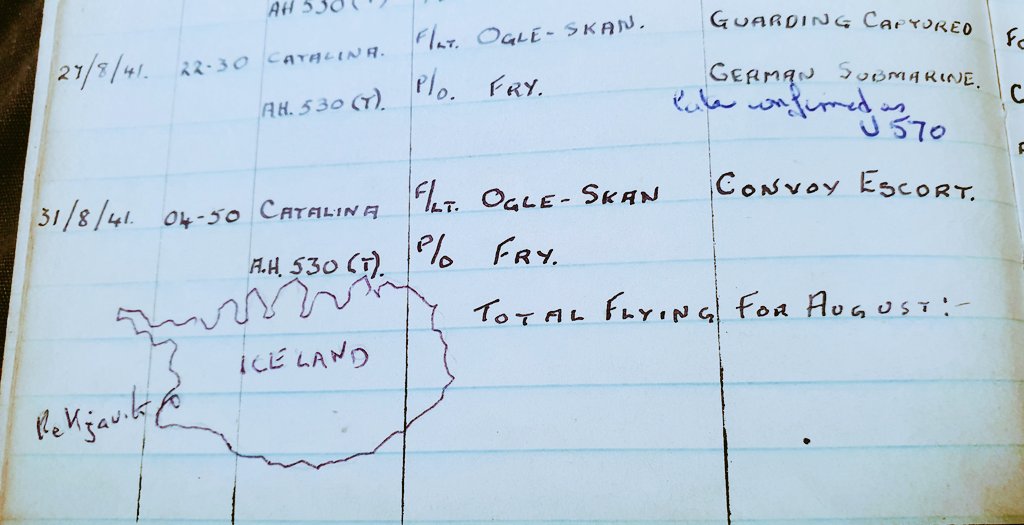 AH 530 (T)
27/8/41. 22-30 CATALINA. F/LT. OGLE-SKAN. GUARDING CAPTURED
AH. 530 (T). P/O. FRY. GERMAN SUBMARINE.
Later confirmed as
U 570
31/8/41. 04-50 CATALINA F/LT. OGLE-SKAN CONVOY ESCORT.
A.H. 530 (T). P/O FRY.
TOTAL FLYING FOR AUGUST:-
ICELAND
Rekjavik